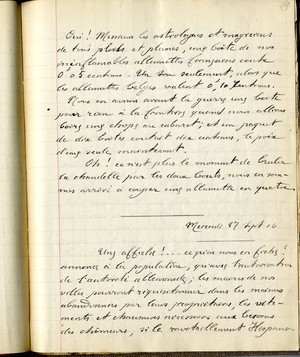 Oui ! Messieurs les astrologues et mages
de tous poils et plumes, cinq boîte de nos
ininflamables allumettes françaises coute
0'05 centimes. Un sou seulement, alors que
les allumettes belges valent 0'10 centimes.
Nous en avions avant la guerre une boite
pour rien à la frontière quand nous allions
boire une chope au cabaret, et un paquet
de dix boites coutait dix centimes, le prix
d'une seule maintenant.
Oh ! ce n'est plus le moment de bruler
la chandelle par les deux bouts, nous en som-
mes arrivé à couper une allumette en quatre.
Mercredi 27 Sept 16.
Une affiche !... ce qu'on nous en fiche !
annonce à la population, qu'avec l'autorisation
de l'autorité allemande, les maires de nos
villes pourront réquisitionner dans les maisons
abandonnées par leurs propriétaires, les vête-
ments et chaussures nécessaires aux besoins
des chômeurs, si le ravitaillement Hispano